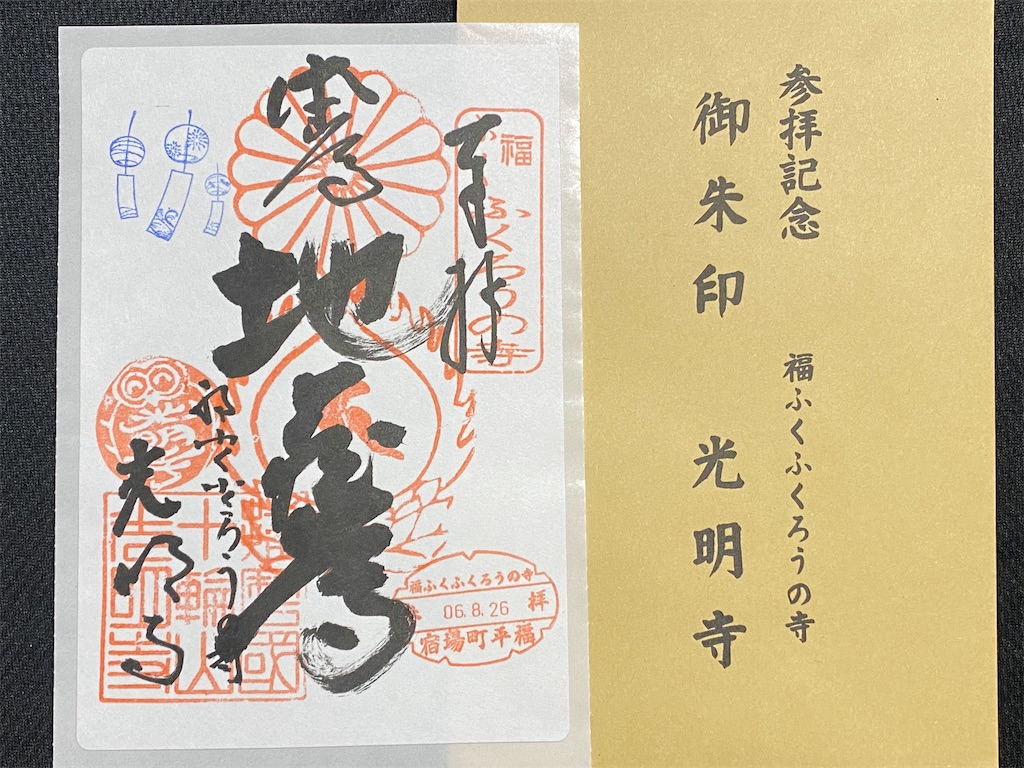 参拝記念
福ふくふくろうの寺
御朱印 光明寺
奉拝
福
ふくろうの寺
地蔵
福ふくふくろうの寺
06.8.26
拝
宿場町平福
福ふくふくろうの寺
光明寺
十輪山